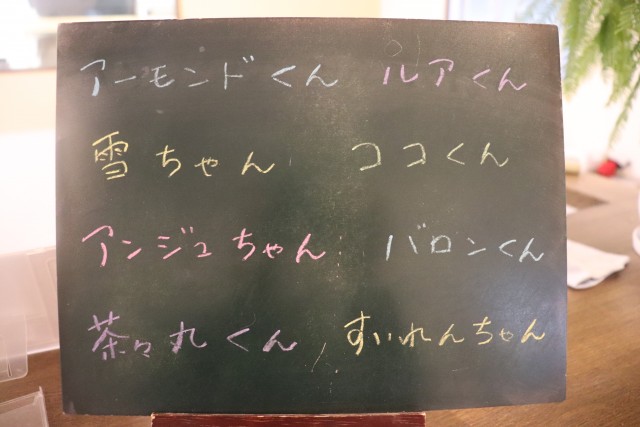 アーモンドくん ルアくん
雪ちゃん ココくん
アンジュちゃん バロンくん
茶々丸くん すいれんちゃん